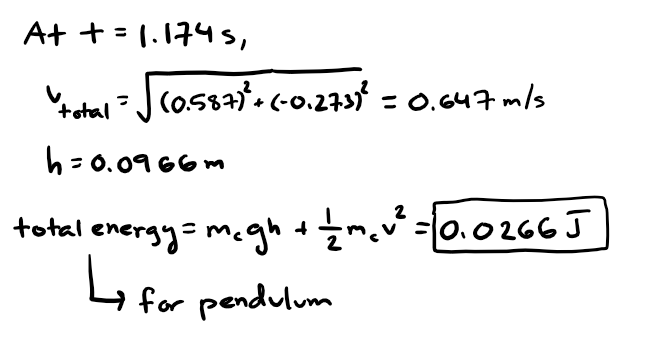 At t = 1.174 s,
v_total = √((0.587)² + (-0.273)²) = 0.647 m/s
h = 0.0966 m
total energy = m_c g h + 1/2 m_c v² = 0.0266 J
↳ for pendulum